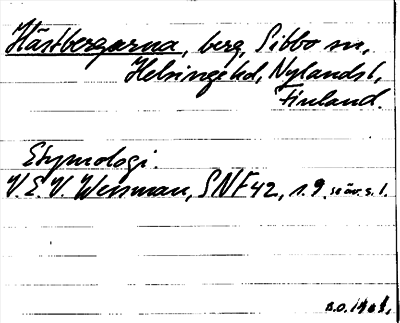 Hästbergarna, berg, Sibbo sn,
Helsinge hd, Nylands l,
Finland.
Etymologi.
V. E. V. Wessman, SNF 42, s. 9. se äv. s. 1.
B.O.